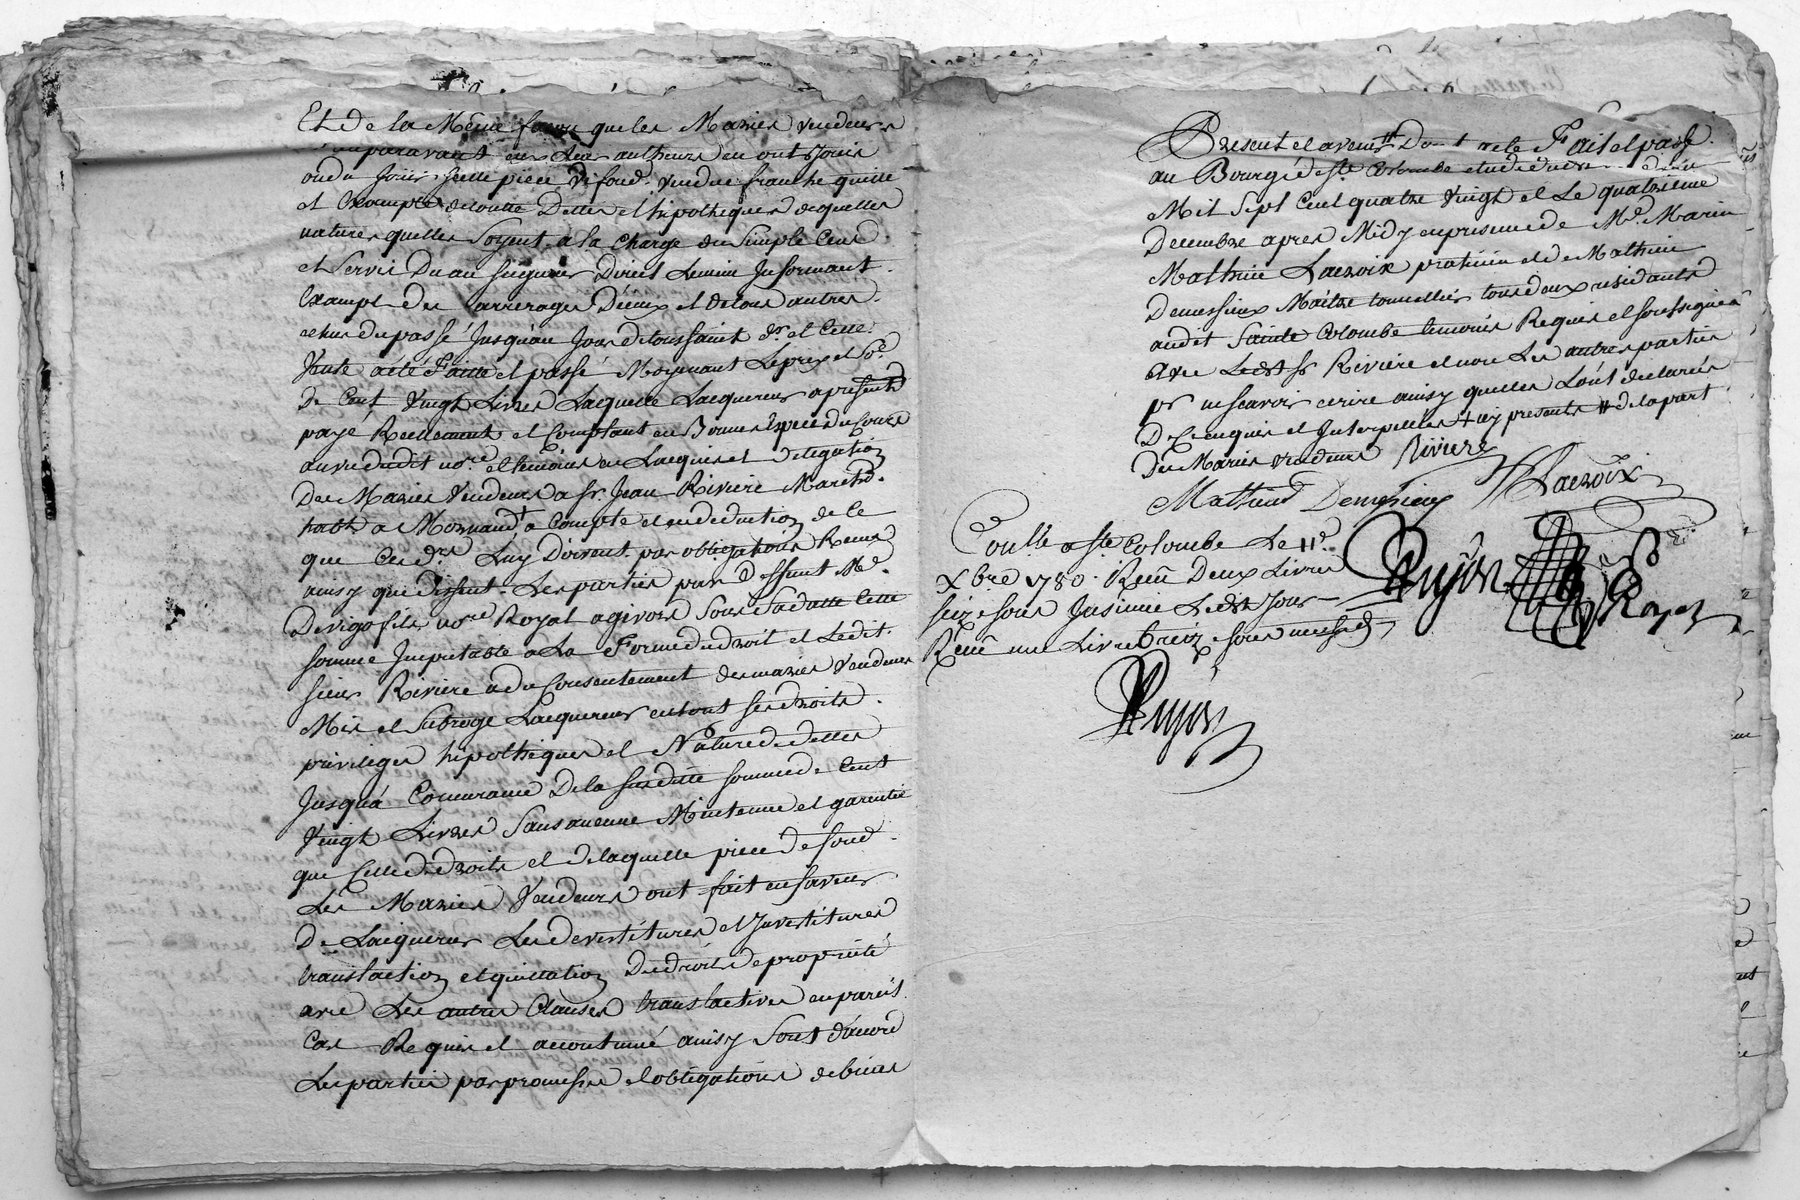 Et de la Même façon que les Mariés vendeurs
auparavant eux et leurs autheurs en ont Joüis
ou dû Joüir Jcelle piece de fond vendue franche quitte
et Exempte de toutte Dettes et hipotheques de quelles
natures quelles Soyent a la charge du Simple Cens
et Servis Du au seigneur Direct Lemine Jnformant
Exampt des arrerages D'iceux et de tous autres
échus du passé Jusqu'au Jour de toussaint dr. et Cette
Vente a été Faitte et passé Moyenant Le prix et So.e
De Cent Vingt Livres Laquelle Lacquereur a présente
payé Reellement et Comptant en Bonnes Espece du Cours
au vu dudit no.re et temoins en Lacquit et delegation
Des Mariés Vendeurs a Sr. Jean Riviere Marchd.
habt. a Mornand a Compte et en deduction de Ce
que Ces d.rs Luy Doivent par obligations Reçue
ainsy que disent Les parties par Deffunt Me.
Devigo fils no.re Royal a givors Sous Sa datte Cette
somme Jmputable a La Forme de droit et Ledit
sieur Riviere a du Consentement des mariés Vendeurs
Mis et Subrogé Lacquereur en tout ses droits
privileges hipotheques et Nature de dettes
Jusqu'a Concurance De la susditte somme de Cent
Vingt Livres Sans aucune Mintenue et garentie
que Celle de droits et de laquelle piece de fond
Les Mariés Vendeurs ont fait en faveur
De Lacquereur Les devestitures et Jnvestitures
translaction et quittation Des droits de propriété
avec Les autres Clauses translactives en pareils
Cas Requis et accoutumé ainsy Sont d'acord
Les parties par promesses et obligations de biens
Present et avenir Dont acte Fait et passé
au Bourg de ste. Colombe
Mil Sept Cent quatre Vingt et Le quatrieme
Decembre apres Midy en presence de Me. Marin
Mathieu Lacroix praticien et de Mathieu
Demessieux Maitre tonnellier tous deux residants
audit Sainte Colombe temoins Requis et soussignés
avec Ledt Sr. Riviere et non Les autres parties
pr. ne scavoir ecrire ainsy quelles L'ont declarés
De Ce enquis et Jnterpellés + cy presents # de la part
Des Mariés vendeurs Riviere
Mathieu Demessieux Lacroix
Conllé a ste Colombe Le 11e.
Xbre 1780. Reçu Deux Livres
seize sous Jnsinué Ledt Jour
Reçu un Livre treize sous